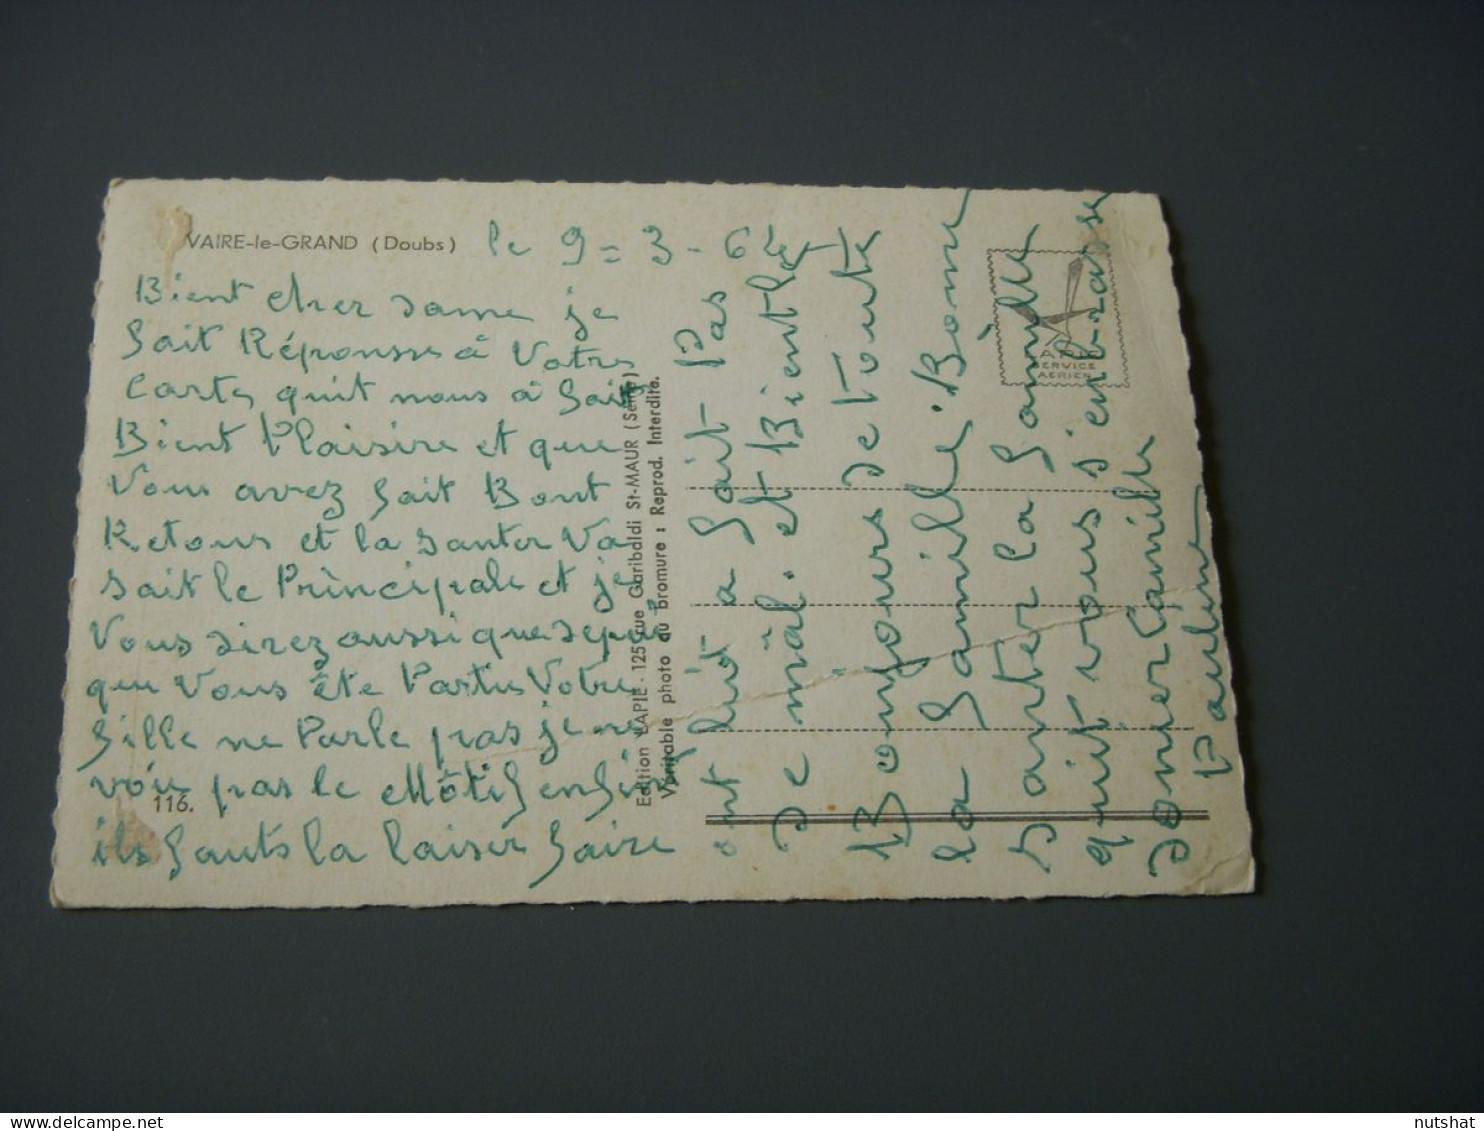 VAIRE-le-GRAND (Doubs)
le 9 = 3 - 62
Bient cher dame je
fait Réponsse à Votre
Carte quit nous à fait
Bient Plaisire et que
Vous avez fait Bont
Retours et la santer Va
sait le Principale et je
Vous direz aussi que depui
que Vous ête Partis Votre
fille ne Parle pas je ne
voie pas le Môtif enfin
ils fauts la laiser faire
116.
Edition LAPIE - 125 rue Garibaldi St-MAUR (Seine)
Véritable photo au bromure : Reprod. Interdite.
ont lui a fait Pas
de mâl. et Bientôt
Bonjours de toute
la famille. Bonne
santer la famille
quit vous s'enbrasse
donier Camille
Pauline
A.P.
SERVICE
AERIEN
nutshat
delcampe.net